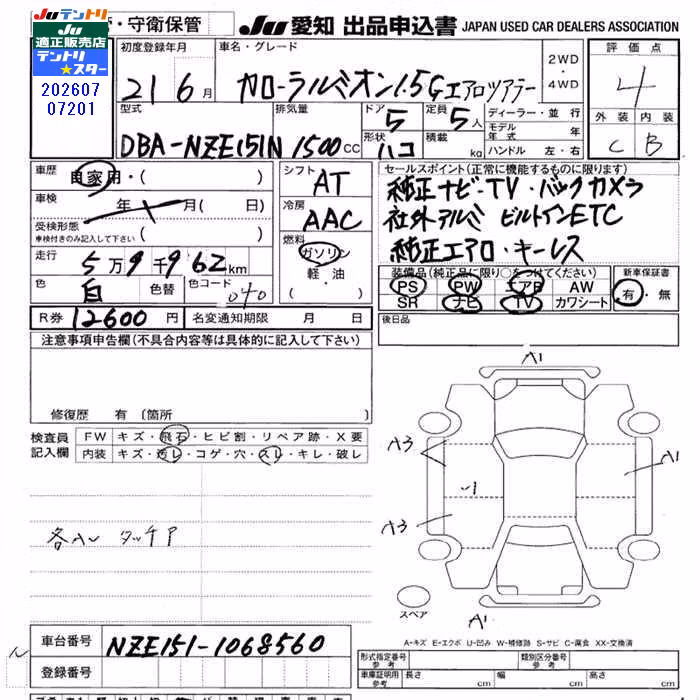 Juテントリ
適正販売店
テントリ
★スター
202607
07201
・守衛保管
Ju 愛知 出品申込書 JAPAN USED CAR DEALERS ASSOCIATION
初度登録年月
21 6月
車名・グレード
カローラルミオン1.5Gエアロツアラー
2WD
・
4WD
評価点
4
外装 内装
C B
型式
DBA-NZE151N
排気量
1500cc
ドア
5
定員
5人
形状
ハコ
積載
kg
ディーラー・並行
モデル年式 年
ハンドル 左・右
車歴
自家用・( )
車検
年 月( 日)
受検形態
車検付きのみ記入して下さい ( )
走行
5万9千962km
色
白
色替
色コード
040
シフト
AT
冷房
AAC
燃料
ガソリン
軽・油
( )
セールスポイント(正常に機能するものに限り)
純正ナビ-TV・バックカメラ
社外アルミ ビルトインETC
純正エアロ・キーレス
装備品(純正品に限り○をつけてください)
PS PW エアB AW
SR ナビ TV カワシート
新車保証書
有・無
R券 12600円
名変通知期限 月 日
後日品
注意事項申告欄(不具合内容等は具体的に記入して下さい)
修復歴 有〔箇所
検査員
記入欄
FW キズ・飛石・ヒビ割・リペア跡・X要
内装 キズ・汚レ・コゲ・穴・スレ・キレ・破レ
各AU タッチア
A1
A3
A3
A1
A1
スペア
A-キズ E-エクボ U-凹み W-補修跡 S-サビ C-腐食 XX-交換済
車台番号 NZE151-1068560
登録番号
形式指定番号
参考
類別区分番号
参考
車庫証明用
参考
長さ cm 幅 cm 高さ cm